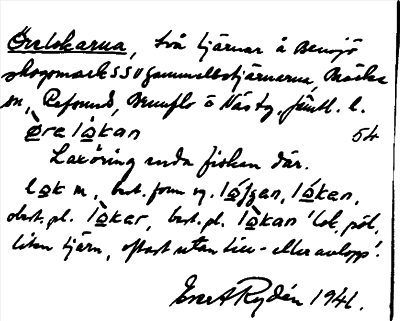 Örelokarna, två tjärnar å Bensjö
skogsmark SSV Gammelbotjärnarna, Bräcke
sn, Refsund, Brunflo o Näs tg, Jämtl. l.
ǫ̀relo̱kan 54
Laxöring enda fisken där.
lo̱k m., best. form sg. ló̱jjan, ló̱kan,
obest. pl. lò̱kar, best. pl. lò̱kan 'lok, pöl,
liten tjärn, oftast utan till- eller avlopp'.
Evert Rydén 1941.